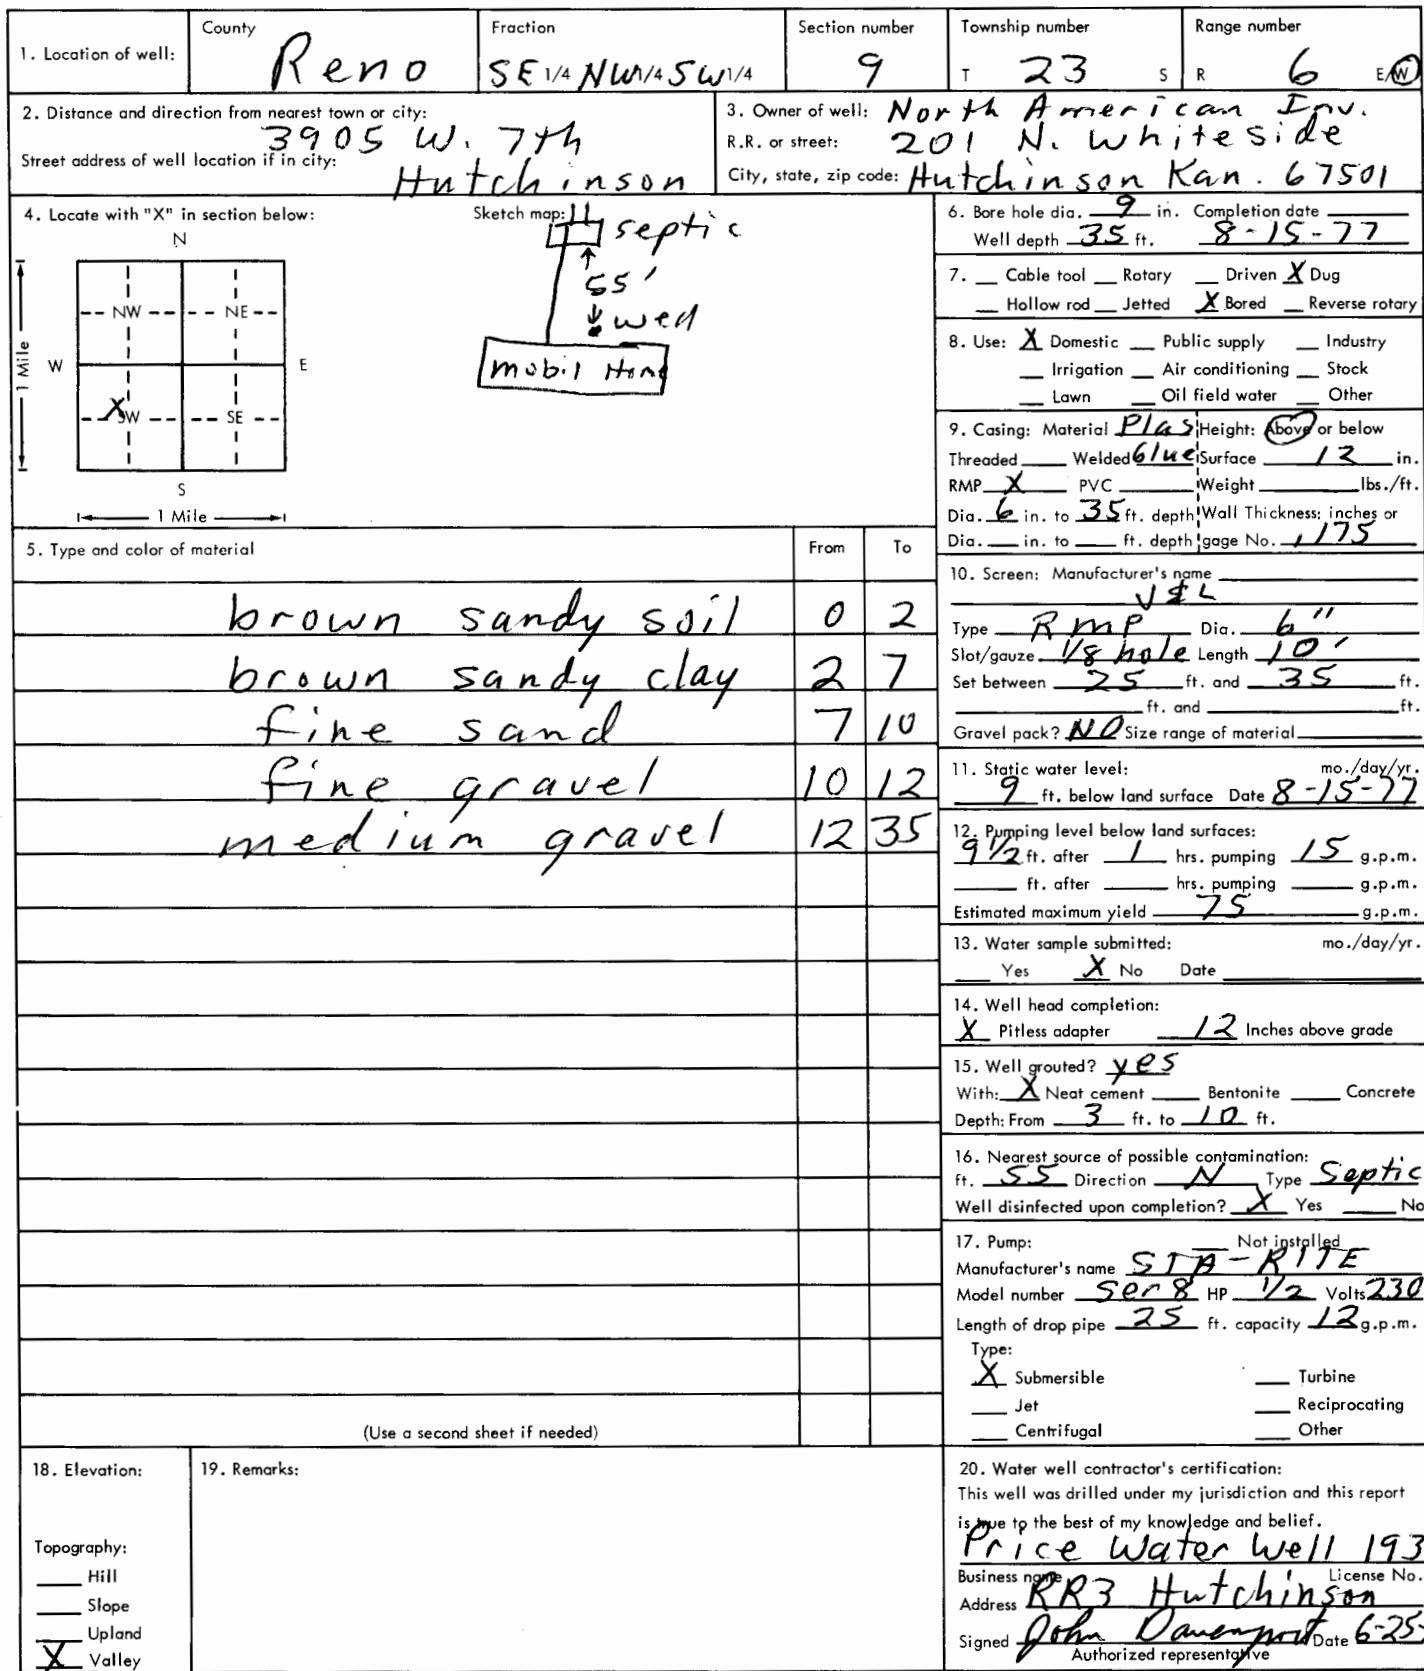 1. Location of well:
County
Reno
Fraction
SE 1/4 NW 1/4 SW 1/4
Section number
9
Township number
T 23 S
Range number
R 6 E/W
2. Distance and direction from nearest town or city:
3905 W. 7th
Street address of well location if in city:
Hutchinson
3. Owner of well: North American Inv.
R.R. or street: 201 N. Whiteside
City, state, zip code: Hutchinson Kan. 67501
4. Locate with "X" in section below:
N
NW NE
W E
X SW SE
S
1 Mile
1 Mile
Sketch map:
septic
55'
well
mobil Home
5. Type and color of material From To
brown sandy soil 0 2
brown sandy clay 2 7
fine sand 7 10
fine gravel 10 12
medium gravel 12 35
(Use a second sheet if needed)
6. Bore hole dia. 9 in. Completion date
Well depth 35 ft. 8-15-77
7. __ Cable tool __ Rotary __ Driven X Dug
__ Hollow rod __ Jetted X Bored __ Reverse rotary
8. Use: X Domestic __ Public supply __ Industry
__ Irrigation __ Air conditioning __ Stock
__ Lawn __ Oil field water __ Other
9. Casing: Material Plas Height: Above or below
Threaded __ Welded Glue Surface 12 in.
RMP X PVC __ Weight __ lbs./ft.
Dia. 6 in. to 35 ft. depth Wall Thickness: inches or
Dia. __ in. to __ ft. depth gage No. .175
10. Screen: Manufacturer's name
V&L
Type RMP Dia. 6"
Slot/gauze 1/8 hole Length 10'
Set between 25 ft. and 35 ft.
__ ft. and __ ft.
Gravel pack? NO Size range of material
11. Static water level: mo./day/yr.
9 ft. below land surface Date 8-15-77
12. Pumping level below land surfaces:
9 1/2 ft. after 1 hrs. pumping 15 g.p.m.
__ ft. after __ hrs. pumping __ g.p.m.
Estimated maximum yield 75 g.p.m.
13. Water sample submitted: mo./day/yr.
__ Yes X No Date
14. Well head completion:
X Pitless adapter 12 Inches above grade
15. Well grouted? yes
With: X Neat cement __ Bentonite __ Concrete
Depth: From 3 ft. to 10 ft.
16. Nearest source of possible contamination:
ft. 55 Direction N Type Septic
Well disinfected upon completion? X Yes __ No
17. Pump: __ Not installed
Manufacturer's name STA-RITE
Model number Ser 8 HP 1/2 Volts 230
Length of drop pipe 25 ft. capacity 12 g.p.m.
Type:
X Submersible __ Turbine
__ Jet __ Reciprocating
__ Centrifugal __ Other
18. Elevation:
Topography:
__ Hill
__ Slope
__ Upland
X Valley
19. Remarks:
20. Water well contractor's certification:
This well was drilled under my jurisdiction and this report
is true to the best of my knowledge and belief.
Price Water Well 193
Business name License No.
Address RR3 Hutchinson
Signed John Davenport Date 6-25-
Authorized representative